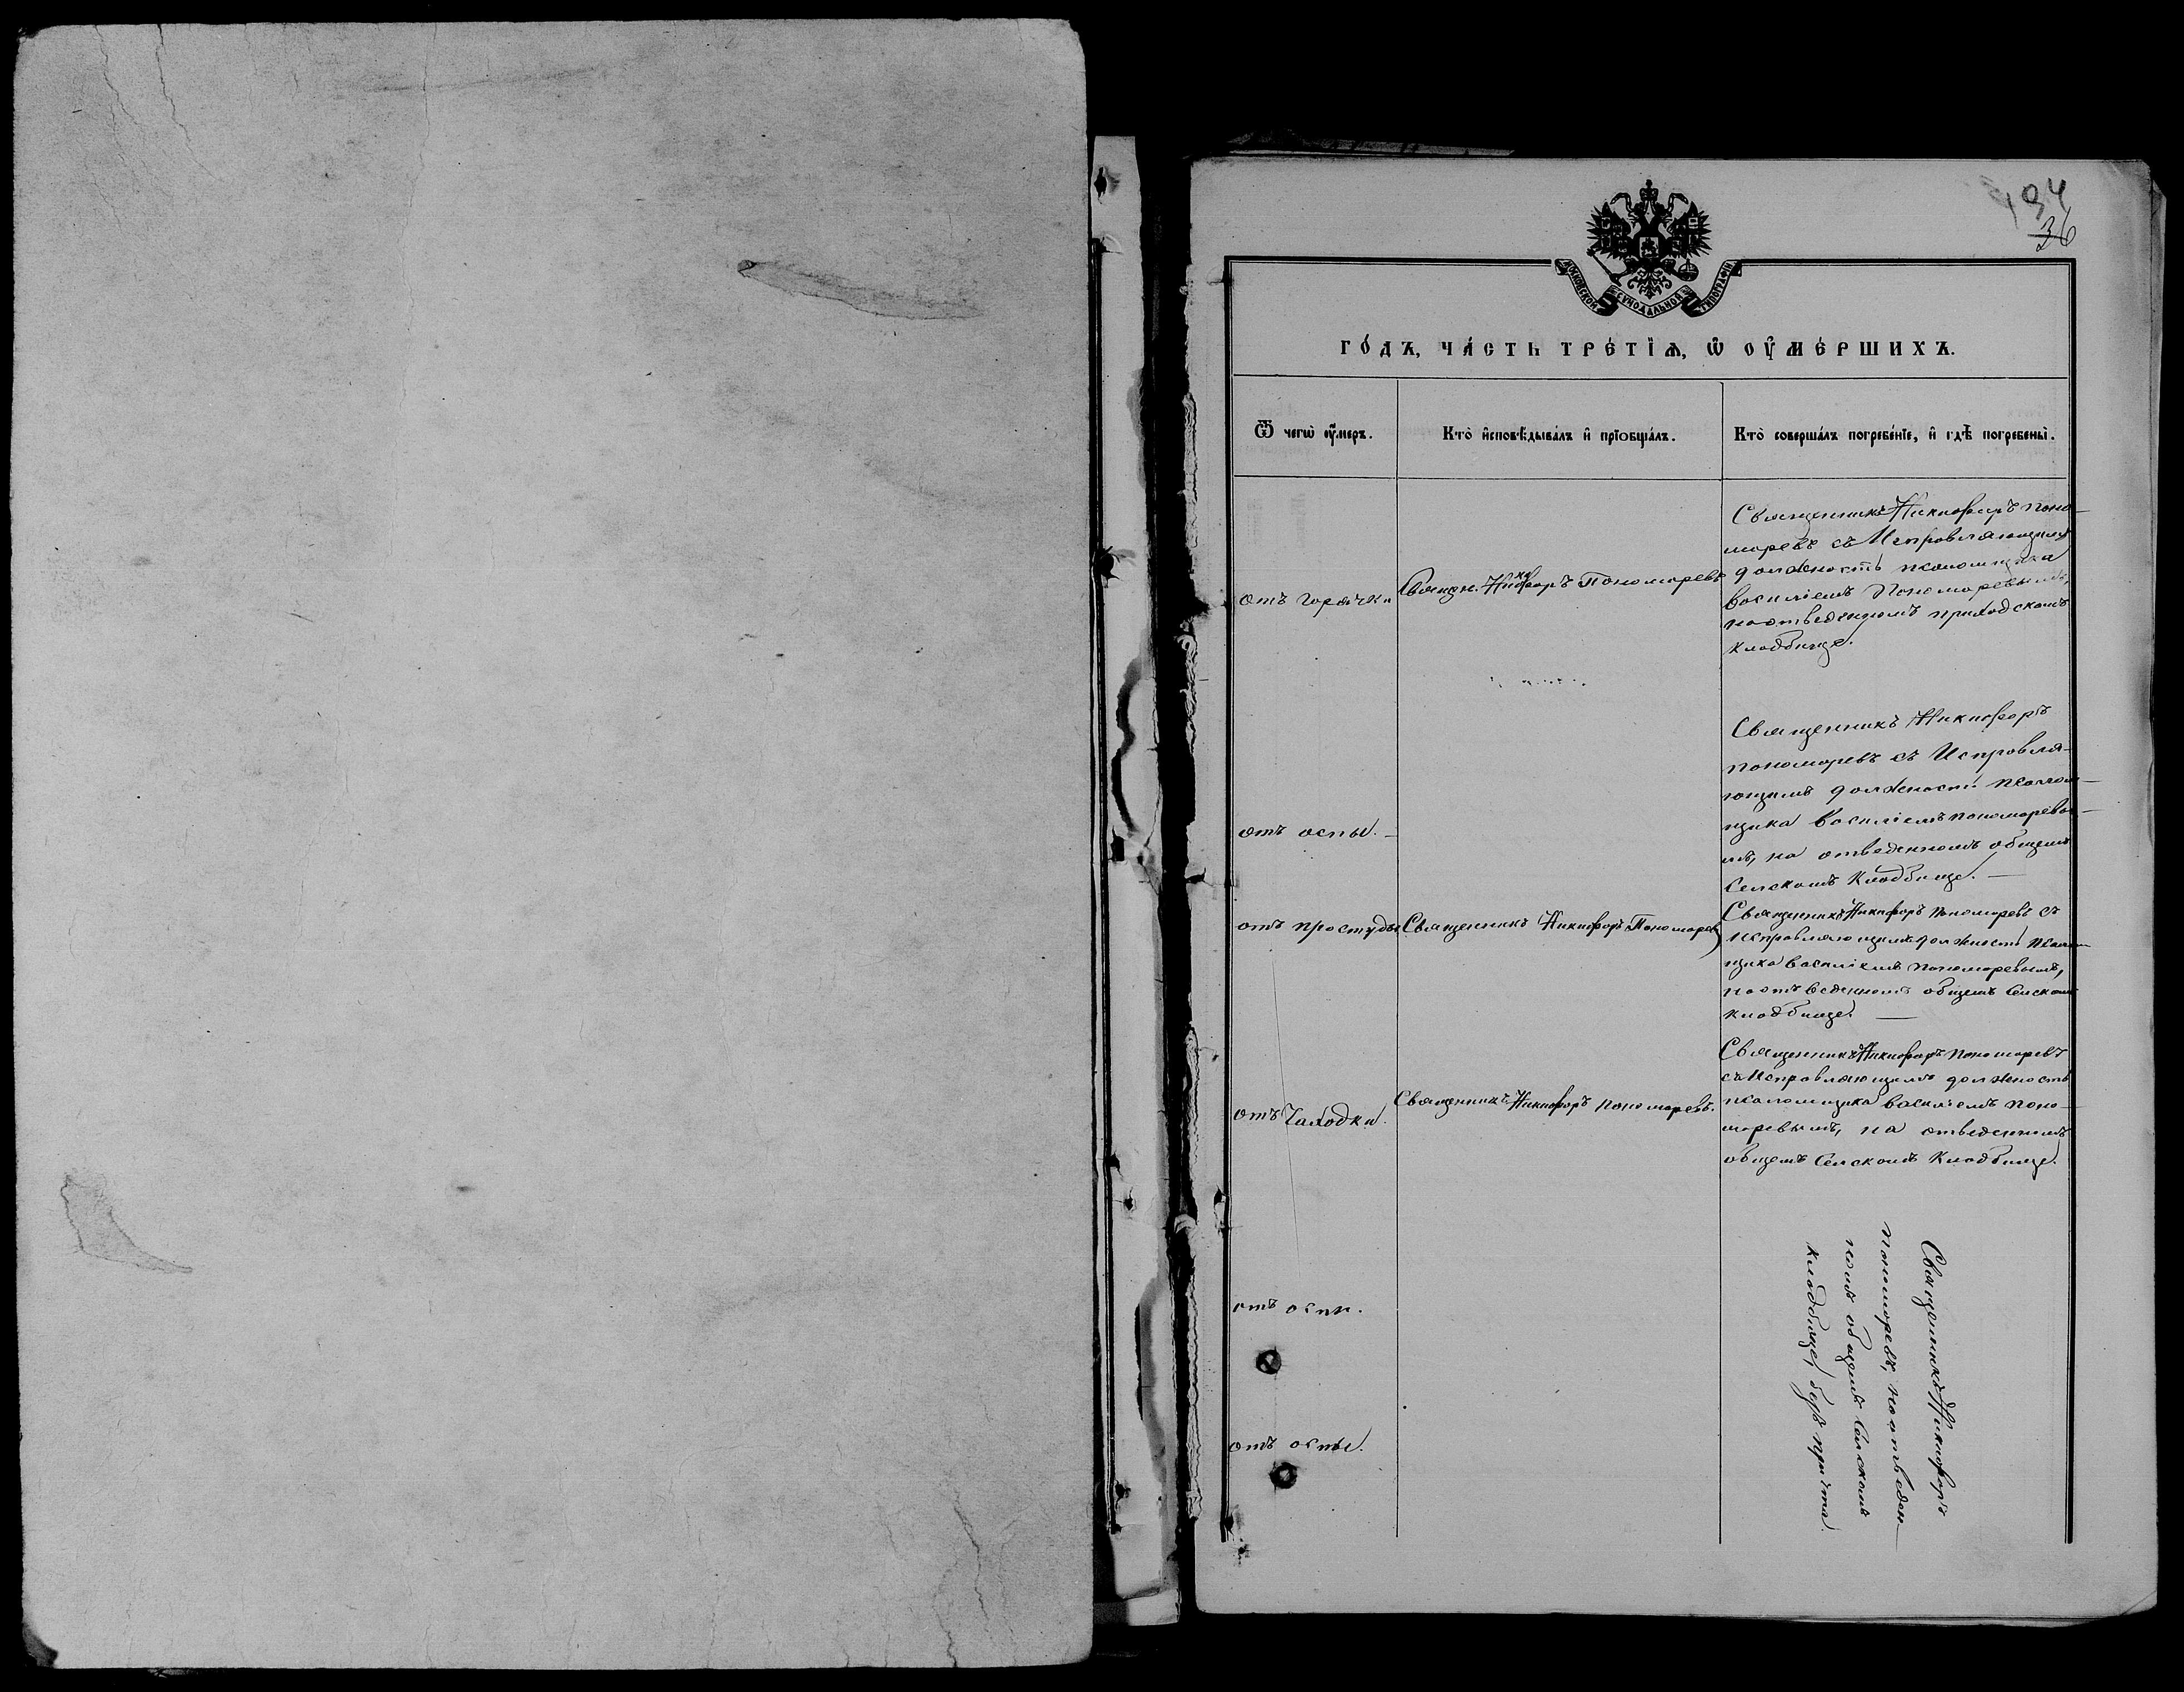 194
36
МОСКОВСКОЙ СУНОДАЛЬНОЙ ТИПОГРАФІИ
ГО́ДЪ, ЧА́СТЬ ТРЕ́ТІѦ, Ѡ҆ ОУ҆МЕ́РШИХЪ.
Ѿ чегѡ̀ оу҆́меръ.
Кто̀ и҆сповѣ́дывалъ и҆ прїобща́лъ.
Кто̀ соверша́лъ погребе́нїе, и҆ гдѣ̀ погребены̀.
отъ горячки
Священ. Никифоръ Пономаревъ
Священникъ Никифоръ Поно-
маревъ съ Исправляющимъ
должность псаломщика
Василіемъ Пономаревымъ,
на отведенномъ приходскомъ
кладбище.
отъ оспы.
Священникъ Никифоръ
Пономаревъ съ Исправля-
ющимъ должность псалом-
щика Василіемъ Пономаревы-
мъ, на отведенномъ общемъ
Селскомъ Кладбище.
отъ простуды
Священникъ Никифоръ Пономаревъ
Священникъ Никифоръ Пономаревъ съ
Исправляющимъ должность псалом-
щика Василіемъ Пономаревымъ,
на отведенномъ общемъ Селскомъ
кладбище.
отъ Чаходки.
Священникъ Никифоръ Пономаревъ.
Священникъ Никифоръ Пономаревъ
съ Исправляющимъ должность
псаломщика Василіемъ Поно-
маревымъ, на отведенномъ
общемъ Селскомъ Кладбище.
отъ оспы.
отъ оспы.
Священникъ Никифоръ
Пономаревъ, на отведен-
номъ общемъ Селскомъ
кладбище, безъ причта.